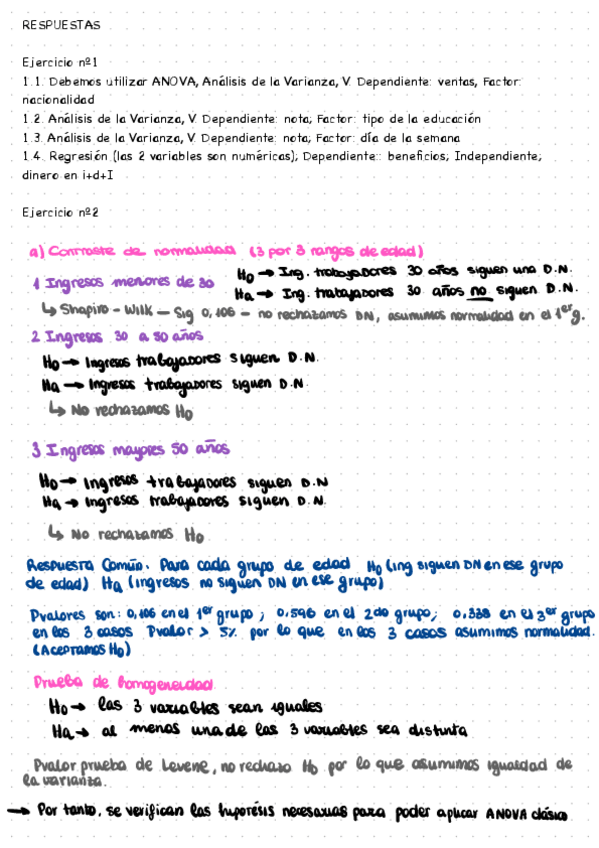 RESPUESTAS
Ejercicio nº1
1.1. Debemos utilizar ANOVA, Análisis de la Varianza, V. Dependiente: ventas, Factor:
nacionalidad
1.2. Análisis de la Varianza, V. Dependiente: nota; Factor: tipo de la educación
1.3. Análisis de la Varianza, V. Dependiente: nota; Factor: día de la semana
1.4. Regresión (las 2 variables son numéricas); Dependiente:: beneficios; Independiente;
dinero en i+d+I
Ejercicio nº2
a) Contraste de normalidad (3 por 3 rangos de edad)
1 Ingresos menores de 30
H0 → Ing. trabajadores 30 años siguen una D.N.
Ha → Ing. trabajadores 30 años no siguen D.N.
↳ Shapiro - Wilk — Sig 0,106 - no rechazamos DN, asumimos normalidad en el 1er g.
2 Ingresos 30 a 50 años
H0 → Ingresos trabajadores siguen D.N.
Ha → Ingresos trabajadores siguen D.N.
↳ No rechazamos H0
3 Ingresos mayores 50 años
H0 → Ingresos trabajadores siguen D.N
Ha → Ingresos trabajadores siguen D.N.
↳ No rechazamos H0
Respuesta Común. Para cada grupo de edad H0 (ing siguen DN en ese grupo
de edad) Ha (ingresos no siguen DN en ese grupo)
Pvalores son: 0,106 en el 1er grupo ; 0.596 en el 2do grupo; 0.338 en el 3er grupo
en los 3 casos Pvalor > 5% por lo que en los 3 casos asumimos normalidad.
(Aceptamos H0)
Prueba de homogeneidad
H0 → las 3 variables sean iguales
Ha → al menos una de las 3 variables sea distinta
Pvalor prueba de Levene, no rechazo H0 por lo que asumimos igualdad de
la varianza.
→ Por tanto, se verifican las hipótesis necesarias para poder aplicar ANOVA clásico